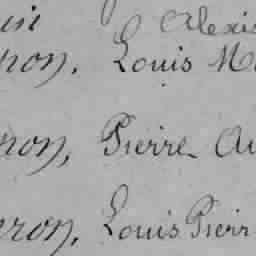 Alexis
non, Louis Ma
ron, Pierre Au
eron, Louis Pierr